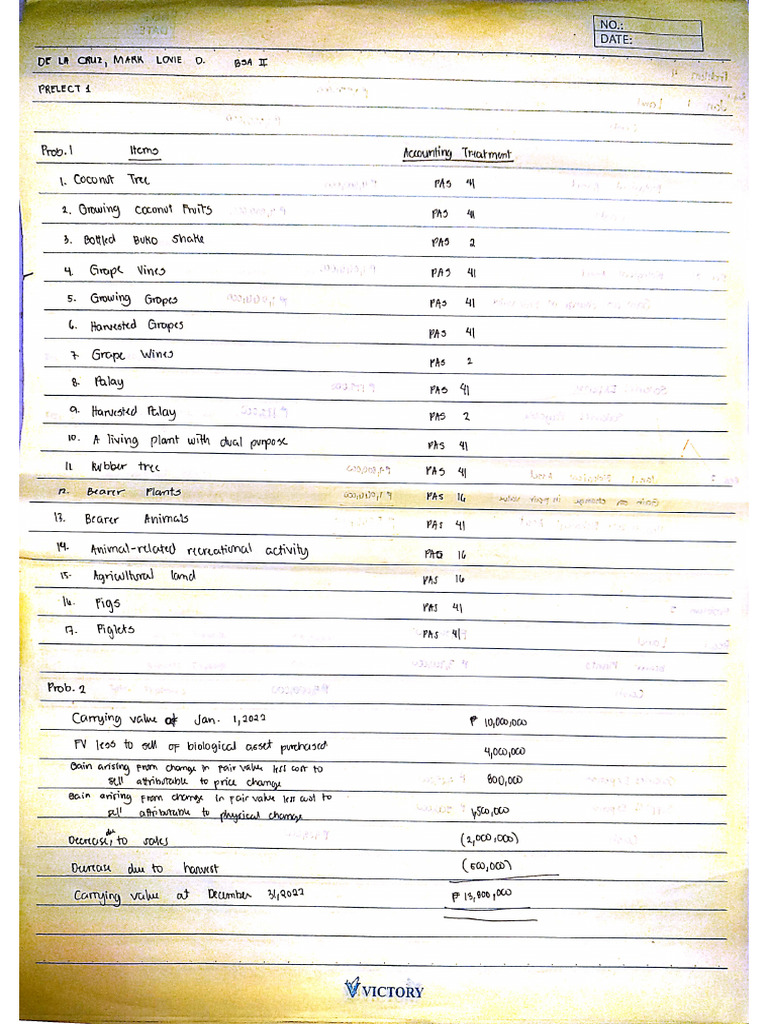 NO.:
DATE:
DE LA CRUZ, MARK LOVIE D. BSA II
PRELECT 1
Prob. 1 Items Accounting Treatment
1. Coconut Tree PAS 41
2. Growing Coconut Fruits PAS 41
3. Bottled Buko Shake PAS 2
4. Grape Vines PAS 41
5. Growing Grapes PAS 41
6. Harvested Grapes PAS 41
7. Grape Wines PAS 2
8. Palay PAS 41
9. Harvested Palay PAS 2
10. A living plant with dual purpose PAS 41
11. Rubber tree PAS 41
12. Bearer Plants PAS 16
13. Bearer Animals PAS 41
14. Animal-related recreational activity PAS 16
15. Agricultural land PAS 16
16. Pigs PAS 41
17. Piglets PAS 41
Prob. 2
Carrying value at Jan. 1, 2022 ₱ 10,000,000
FV less to sell of biological asset purchased 4,000,000
Gain arising from change in fair value less cost to
sell attributable to price change 800,000
Gain arising from change in fair value less cost to
sell attributable to physical change 1,500,000
Decrease due to sales (2,000,000)
Decrease due to harvest (500,000)
Carrying value at December 31, 2022 ₱ 13,800,000
VICTORY